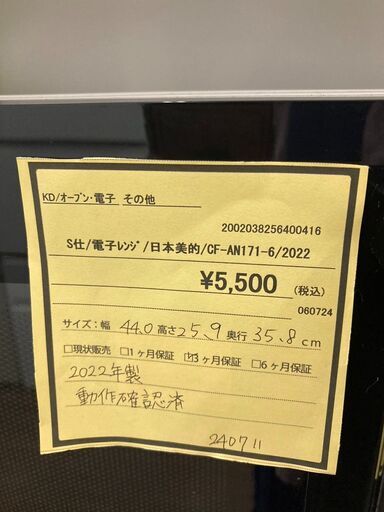 KD/オーブン・電子 その他
2002038256400416
S仕/電子ﾚﾝｼﾞ/日本美的/CF-AN171-6/2022
¥5,500 (税込)
060724
サイズ:幅 44.0 高さ 25.9 奥行 35.8 cm
□現状販売 □1ヶ月保証 ☑3ヶ月保証 □6ヶ月保証
2022年製
動作確認済
240711